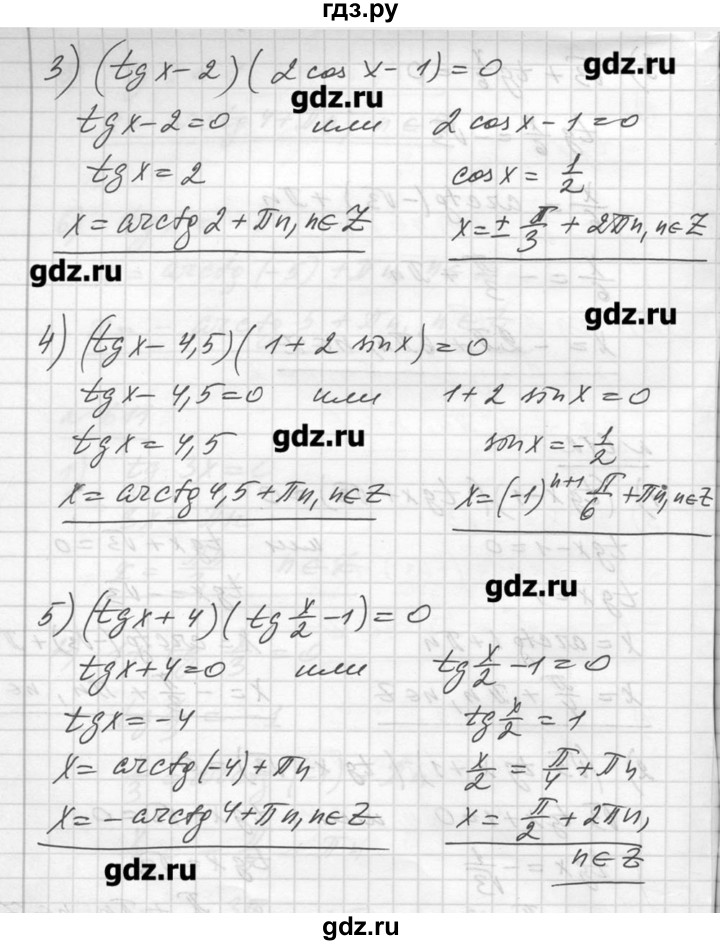 гдз.ру
3) (tgx-2)(2cosx-1)=0
gdz.ru
gdz.ru
tgx-2=0 или 2cosx-1=0
tgx=2 cosx=1/2
x=arctg2+πn, n∈Z x=±π/3+2πn, n∈Z
gdz.ru
gdz.ru
4) (tgx-4,5)(1+2sinx)=0
tgx-4,5=0 или 1+2sinx=0
tgx=4,5 gdz.ru sinx=-1/2
x=arctg4,5+πn, n∈Z x=(-1)^{n+1}π/6+πn, n∈Z
gdz.ru
5) (tgx+4)(tg x/2-1)=0
tgx+4=0 или tg x/2-1=0
tgx=-4 tg x/2=1
x=arctg(-4)+πn x/2=π/4+πn
x=-arctg4+πn, n∈Z x=π/2+2πn,
n∈Z
gdz.ru
gdz.ru